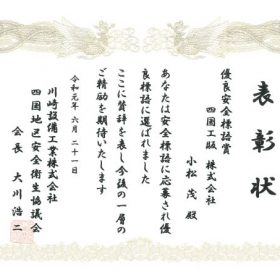 表彰状
優良安全標語賞
四国工販 株式会社
小松 茂 殿
あなたは安全標語に応募され優
良標語に選ばれました
ここに賛辞を表し今後一層の
ご精励を期待いたします
令和元年 六月 二十一日
川崎設備工業株式会社
四国地区安全衛生協議会
会長 大川 浩二